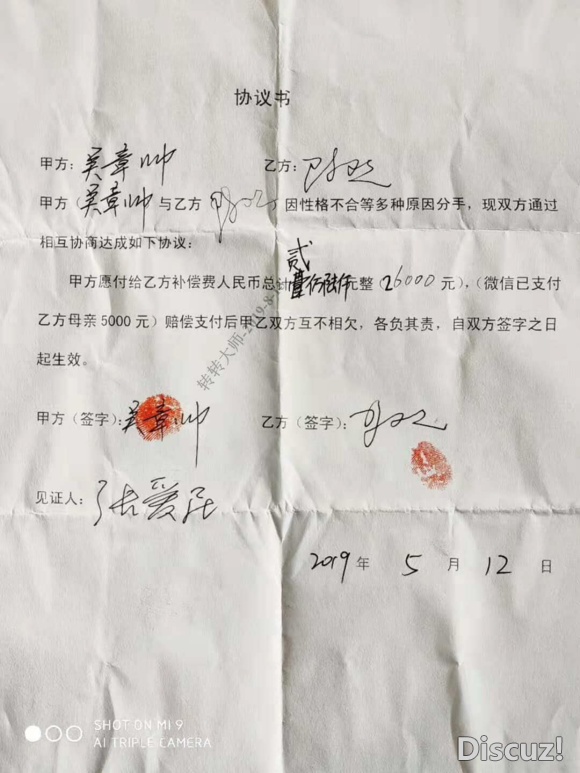 协议书
甲方：吴章帅 乙方：
甲方（吴章帅 与乙方 因性格不合等多种原因分手，现双方通过
相互协商达成如下协议：
甲方愿付给乙方补偿费人民币总计贰万陆仟元整（26000元），（微信已支付
乙方母亲5000元）赔偿支付后甲乙双方互不相欠，各负其责，自双方签字之日
起生效。
甲方（签字）：吴章帅 乙方（签字）：
见证人：张爱
2019年 5 月 12 日
转转大师-2019-8-
SHOT ON MI 9
AI TRIPLE CAMERA
Discuz!